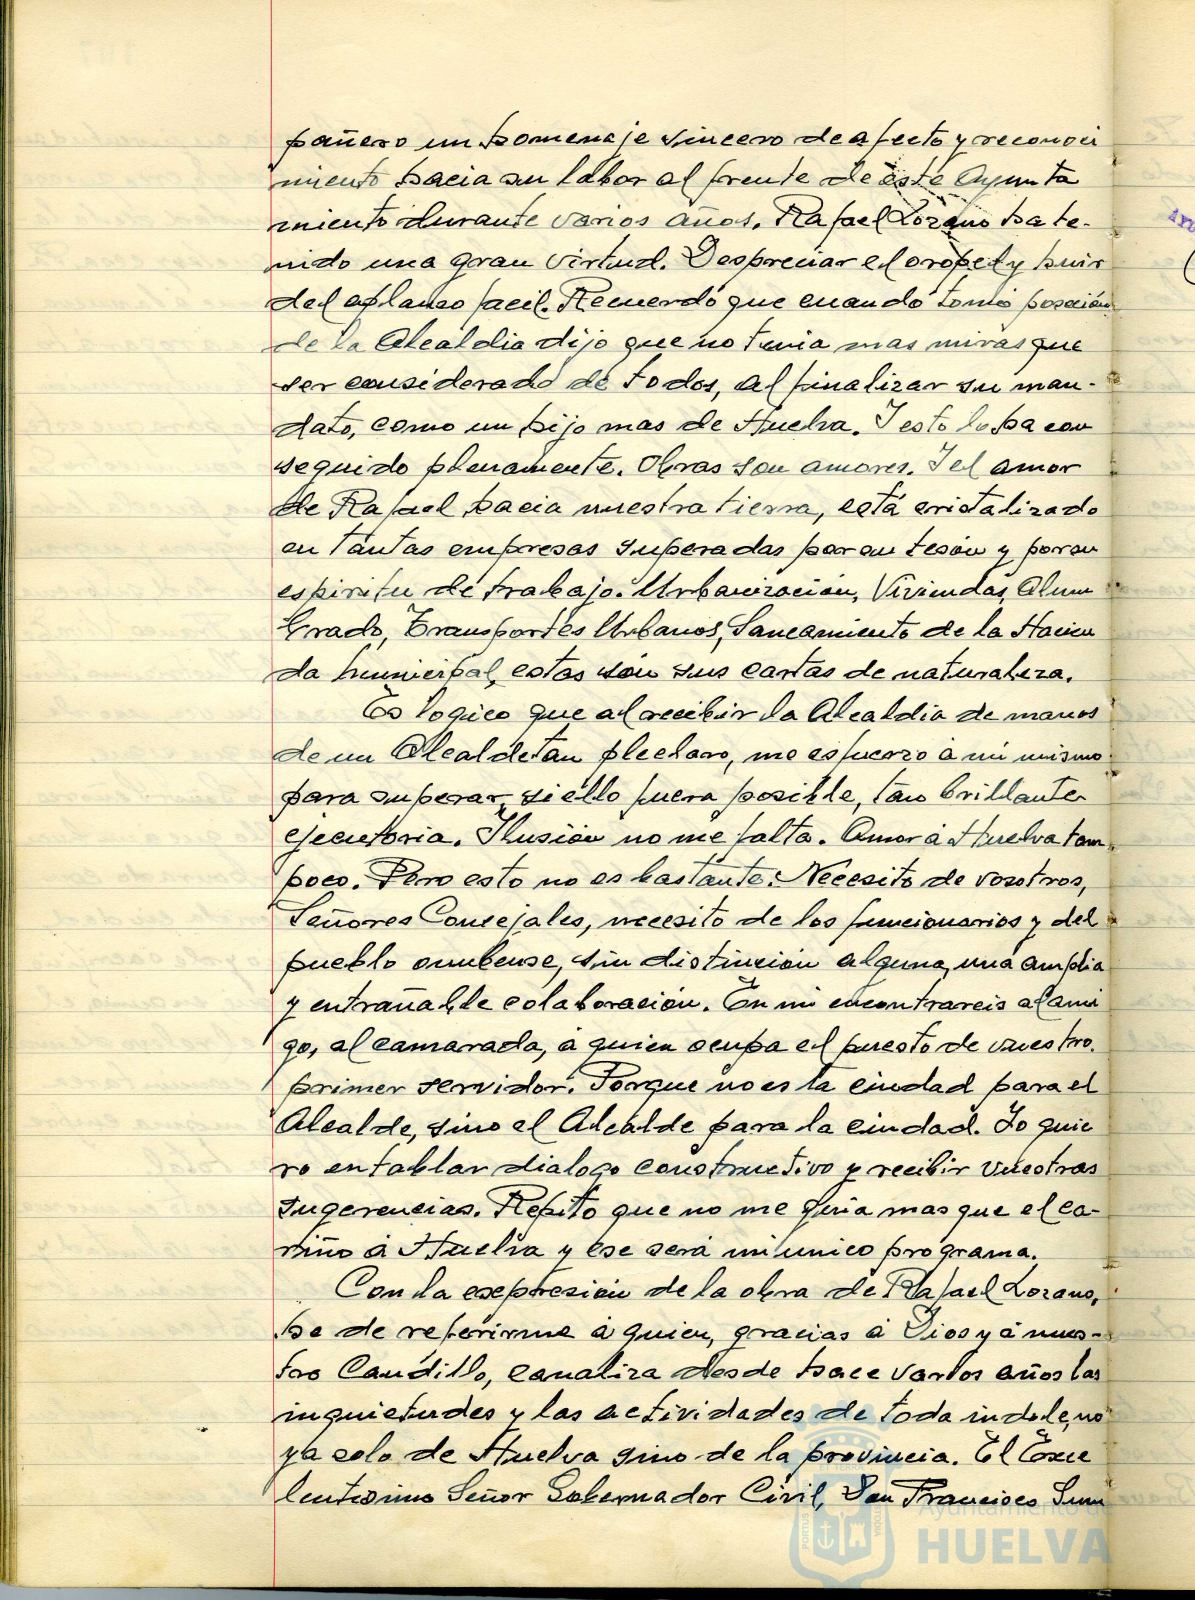 pañero un homenaje sincero de afecto y reconoci
miento hacia su labor al frente de este Ayunta
miento durante varios años. Rafael Lozano ha te-
nido una gran virtud. Despreciar el oropel y huir
del aplauso facil. Recuerdo que cuando tomó posesión
de la Alcaldia dijo que no tenia mas miras que
ser considerado de todos, al finalizar su man-
dato, como un hijo mas de Huelva. Y esto lo ha con
seguido plenamente. Obras son amores. Y el amor
de Rafael hacia nuestra tierra, está cristalizado
en tantas empresas superadas por su tesón y por su
espiritu de trabajo. Urbanización, Viviendas, Alum
brado, Transportes Urbanos, Saneamiento de la Hacien
da Municipal, estas són sus cartas de naturaleza.
Es logico que al recibir la Alcaldia de manos
de un Alcalde tan pleclaro, me esfuerzo á mi mismo
para superar, si ello fuera posible, tan brillante
ejecutoria. Ilusión no me falta. Amor á Huelva tam
poco. Pero esto no es bastante. Necesito de vosotros,
Señores Concejales, necesito de los funcionarios y del
pueblo onubense, sin distinción alguna, una amplia
y entrañable colaboración. En mi encontrareis al ami
go, al camarada, á quien ocupa el puesto de vuestro
primer servidor. Porque no es la ciudad para el
Alcalde, sino el Alcalde para la ciudad. Yo quie
ro entablar dialogo constructivo y recibir vuestras
sugerencias. Repito que no me guia mas que el ca-
riño á Huelva y ese será mi unico programa.
Con la expresión de la obra de Rafael Lozano,
he de referirme á quien, gracias á Dios y á nues-
tro Caudillo, canaliza desde hace varios años las
inquietudes y las actividades de toda indole, no
ya solo de Huelva sino de la provincia. El Exce
lentisimo Señor Gobernador Civil, Don Francisco Sum
Ayuntamiento de
HUELVA